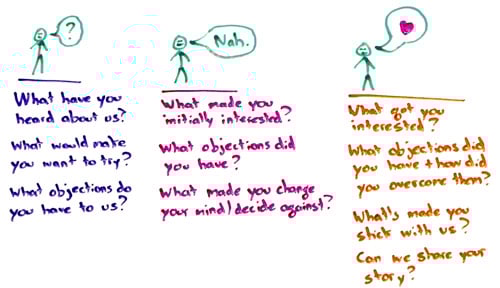 ?
What have you
heard about us?
What would make
you want to try?
What objections do
you have to us?
Nah.
What made you
initially interested?
What objections did
you have?
What made you change
your mind/decide against?
What got you
interested?
What objections did
you have + how did
you overcome them?
What's made you
stick with us?
Can we share your
story?